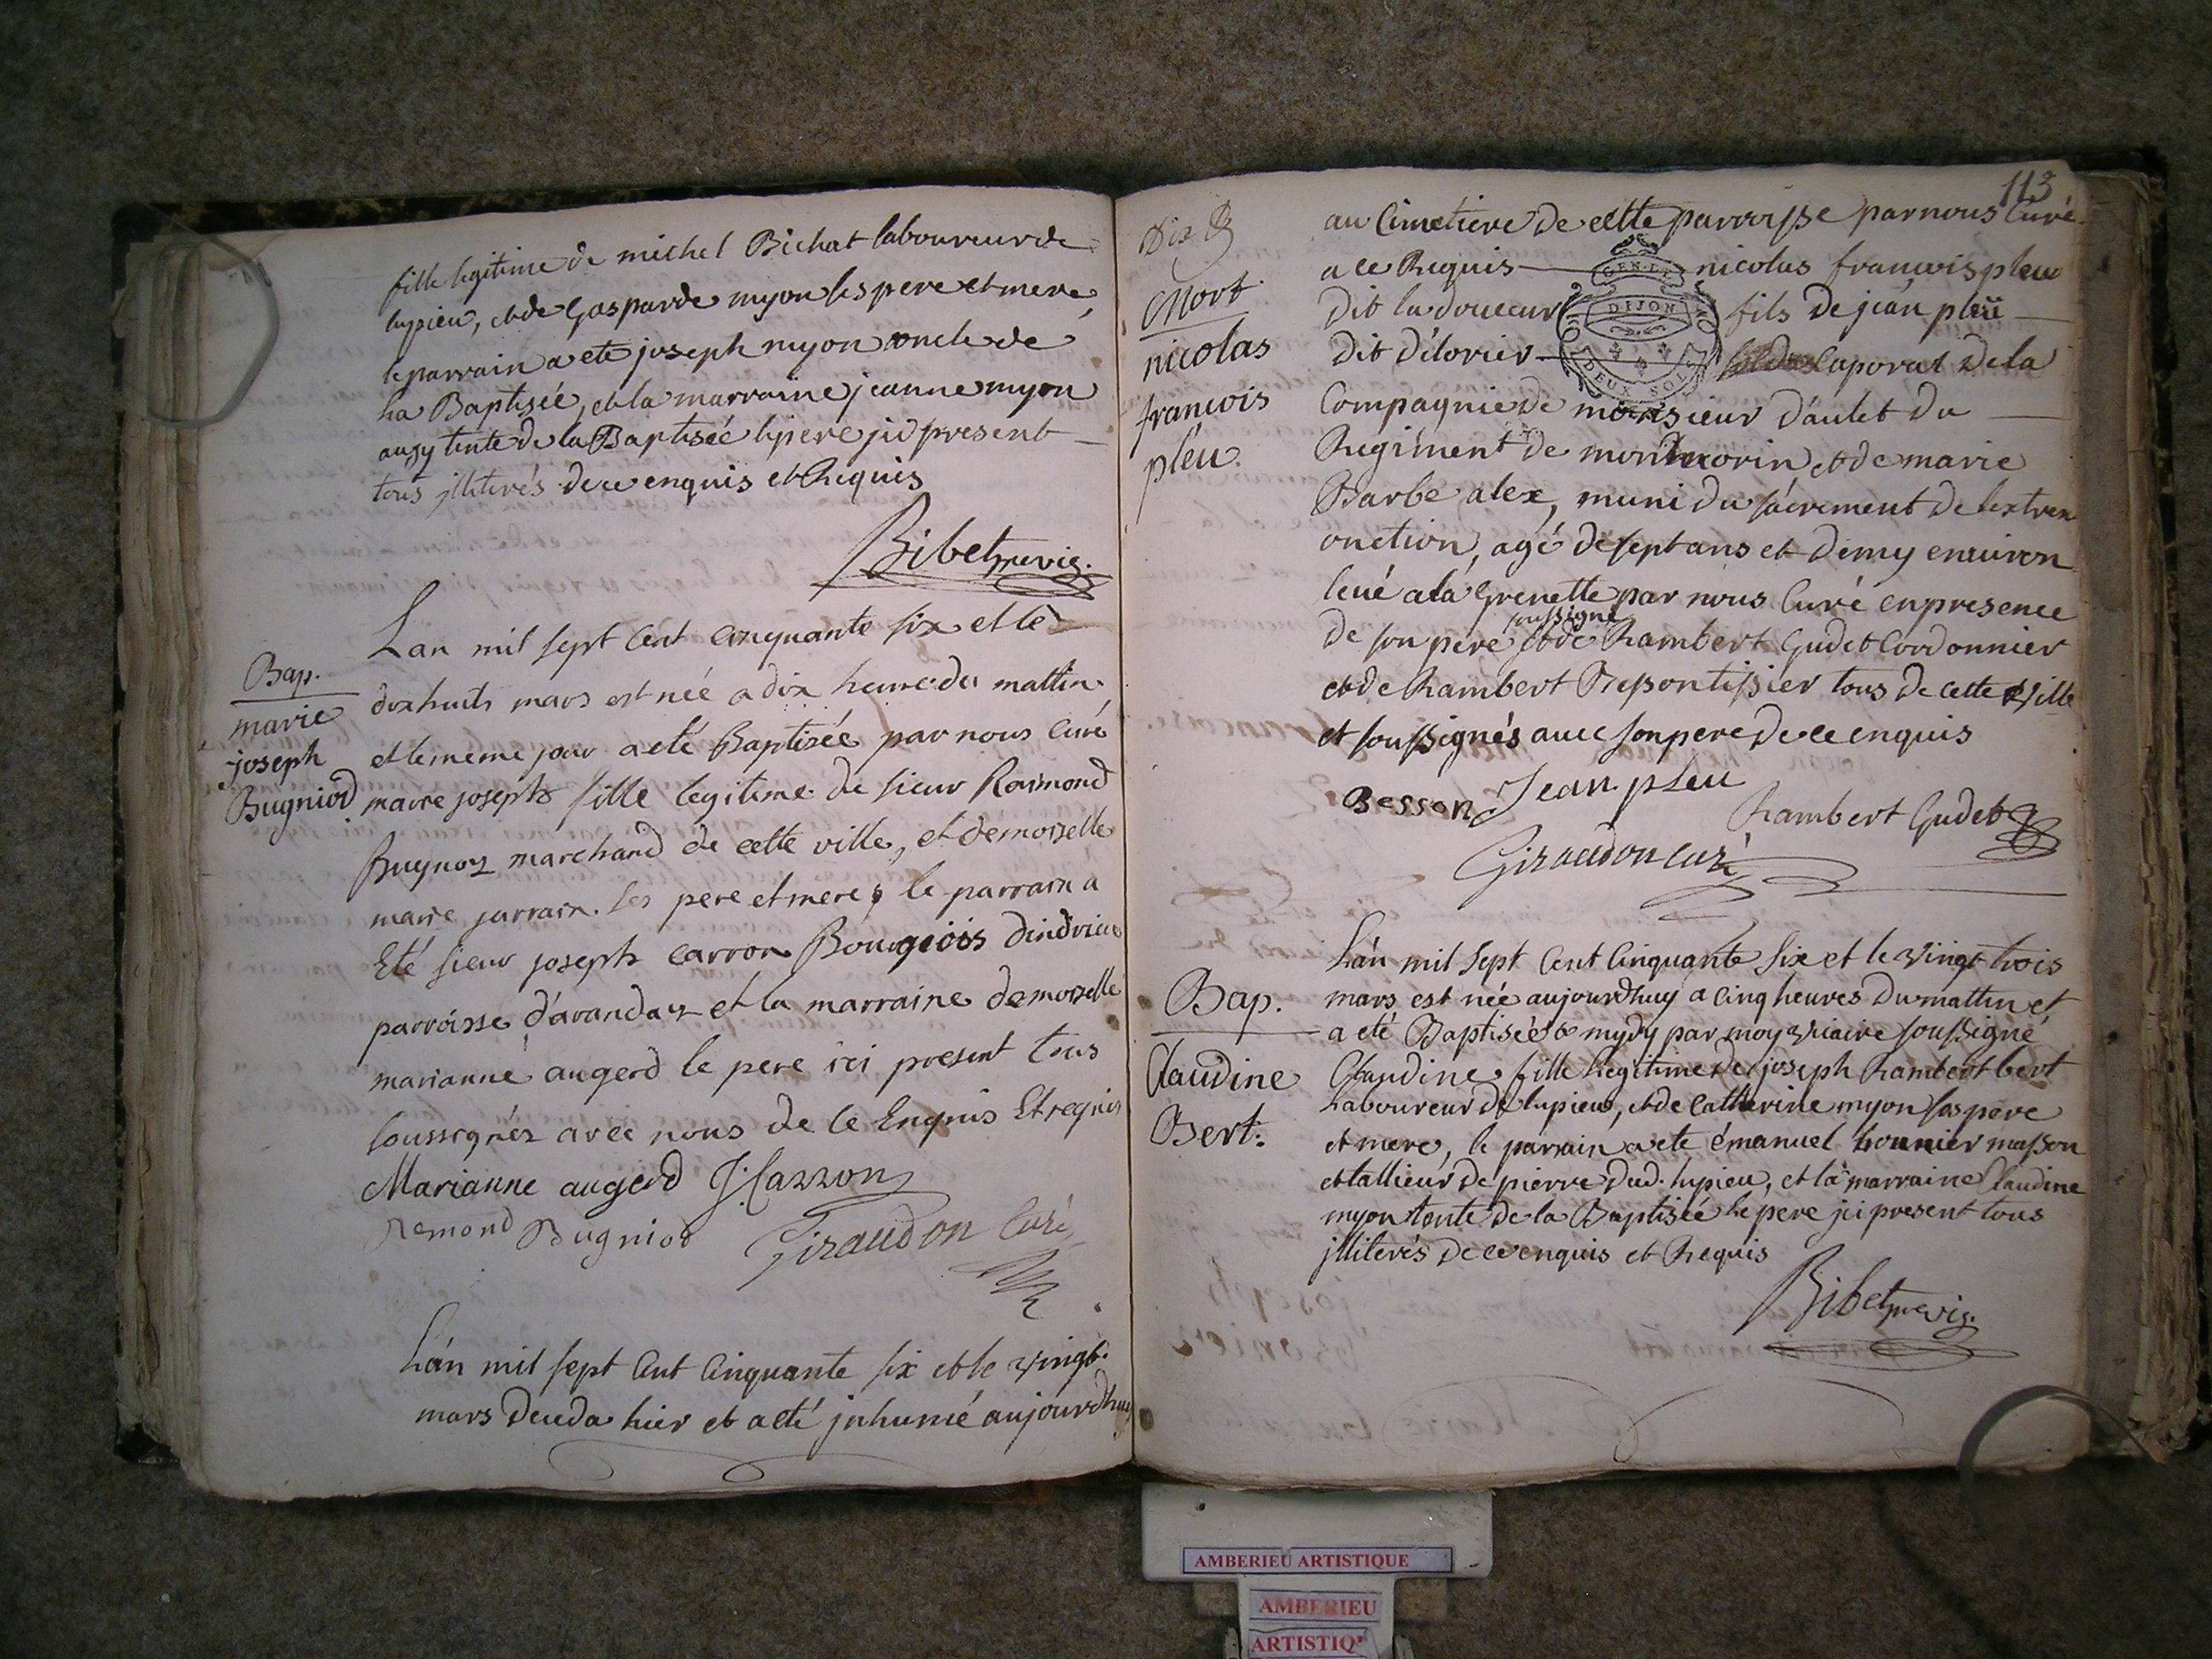 fille legitime de michel Bichat laboureur de
lupieu, et de Gasparde myon ses pere et mere,
le parrain a eté joseph myon oncle de
la Baptisée, et la marraine jeanne myon
aussy tente de la Baptisée le pere jci present
tous jlliterés de ce enquis et Requis
Bibet pre vic.
Bap.
marie
joseph
Bugniod
Lan mil sept cent cinquante six et le
dix huits mars est née a dix heure du mattin
et le meme jour a eté Baptisée par nous curé
marie joseph fille legitime de sieur Raimond
Bugnoz marchand de cette ville, et demoiselle
marie jarrain ses pere et mere, le parrain a
Eté sieur joseph carron Bourgeois dindrieu
parroisse d'arandaz et la marraine demoiselle
marianne augerd le pere ici present tous
soussignéz avec nous de ce Enquis Et requis
Marianne augerd J. Carron
Remond Bugniod Giraudon Curé
Lán mil sept Cent Cinquante six et le vingt
mars deceda hier et a eté jnhumé aujourdhuy
113
Mort
nicolas
francois
pleu.
au Cimetiere de cette parroisse par nous Curé
a ce Requis nicolas francois pleu
dit la douceur fils de jean pleu
dit délorier Caporal de la
GEN. DE
DIJON
DEUX SOLS
Compagnie de monsieur d'aulet du
Regiment de montmorin et de marie
Barbe alex, muni du sácrement de lextreme
onction, agé de sept ans et demy environ
levé a la Grenette par nous Curé en presence
de son pere soussigné et de Rambert Gudet Cordonnier
et de Rambert Bessontissier tous de cette ville
et soussignés avec son pere de ce enquis
Besson Jean pleu
Rambert Gudet
Giraudon curé
Bap.
Claudine
Bert.
Lán mil sept Cent Cinquante six et le vingt trois
mars est née aujourdhuy a cinq heures du mattin et
a eté Baptisée a mydy par moy vicaire soussigné
Claudine fille legitime de joseph Rambert bert
Laboureur de lupieu, et de Catherine myon ses pere
et mere, le parrain a ete émanuel bonnier masson
et tallieur de pierre dud. lupieu, et la marraine Claudine
myon tente de la Baptisée le pere jci present tous
jlliterés de ce enquis et Requis
Bibet pre vic.
AMBERIEU ARTISTIQUE
AMBERIEU
ARTISTIQ